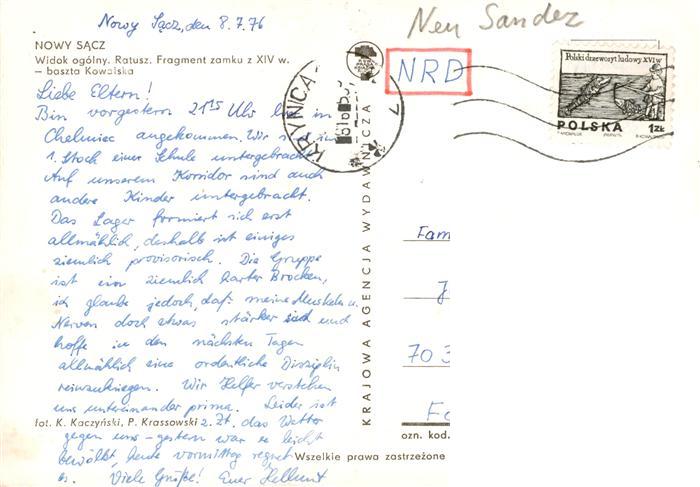 Nowy Sącz, den 8.7.76
Neu Sandez
NOWY SĄCZ
Widok ogólny. Ratusz. Fragment zamku z XIV w.
– baszta Kowalska
NRD
KRYNICA
Polski drzeworyt ludowy XVI w
POLSKA 1ZŁ
Liebe Eltern!
Bin vorgestern 21 15 Uhr hier in
Chelmiec angekommen. Wir sind im
1. Stock einer Schule untergebracht.
Auf unserem Korridor sind auch
andere Kinder untergebracht.
Das Lager formiert sich erst
allmählich, deshalb ist einiges
ziemlich provisorisch. Die Gruppe
ist ein ziemlich harter Brocken,
ich glaube jedoch, daß meine Muskeln u.
Nerven doch etwas stärker sind und
hoffe in den nächsten Tagen
allmählich eine ordentliche Disziplin
reinzukriegen. Wir Helfer verstehen
uns untereinander prima. Leider ist
fot. K. Kaczyński, P. Krassowski
z. Zt. das Wetter
gegen uns – gestern war es leicht
bewölkt, heute vormittag regnet
es. Viele Grüße! Euer Hellmut
KRAJOWA AGENCJA WYDAWNICZA
Fam
J
70 3
ozn. kod.
Wszelkie prawa zastrzeżone